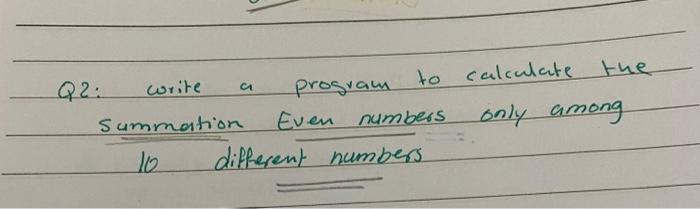 Q2: write a program to calculate the
Summation Even numbers only among
10 different numbers